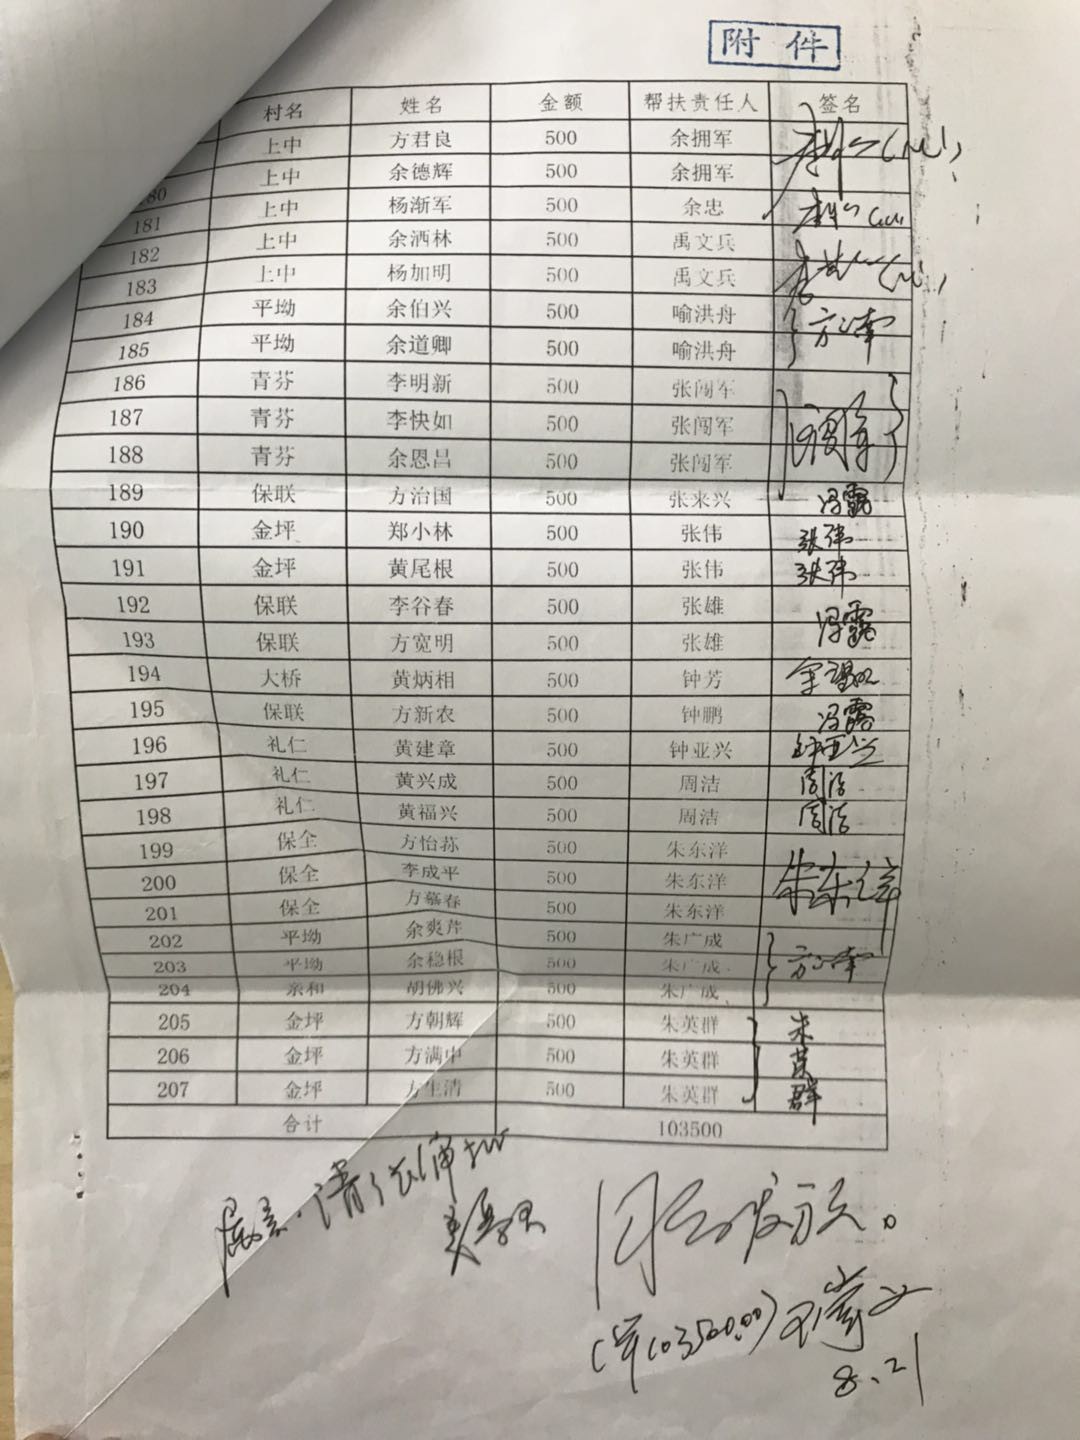 附件
村名 姓名 金额 帮扶责任人 签名
上中 方君良 500 余拥军
80 上中 余德辉 500 余拥军
181 上中 杨渐军 500 余忠
182 上中 余洒林 500 禹文兵
183 上中 杨加明 500 禹文兵
184 平坳 余伯兴 500 喻洪舟
185 平坳 余道卿 500 喻洪舟
186 青芬 李明新 500 张闯军
187 青芬 李快如 500 张闯军
188 青芬 余恩昌 500 张闯军
189 保联 方治国 500 张来兴 冯露
190 金坪 郑小林 500 张伟 张伟
191 金坪 黄尾根 500 张伟 张伟
192 保联 李谷春 500 张雄 冯露
193 保联 方宽明 500 张雄
194 大桥 黄炳相 500 钟芳
195 保联 方新农 500 钟鹏 冯露
196 礼仁 黄建章 500 钟亚兴 钟亚兴
197 礼仁 黄兴成 500 周洁 周洁
198 礼仁 黄福兴 500 周洁 周洁
199 保全 方怡荪 500 朱东洋
200 保全 李成平 500 朱东洋 朱东洋
201 保全 方慕春 500 朱东洋
202 平坳 余爽芹 500 朱广成
203 平坳 余稳根 500 朱广成
204 亲和 胡佛兴 500 朱广成
205 金坪 方朝辉 500 朱英群 朱
206 金坪 方满中 500 朱英群 英
207 金坪 方生清 500 朱英群 群
合计 103500
属实.请
同意发放。
(¥103500.00)
8.21